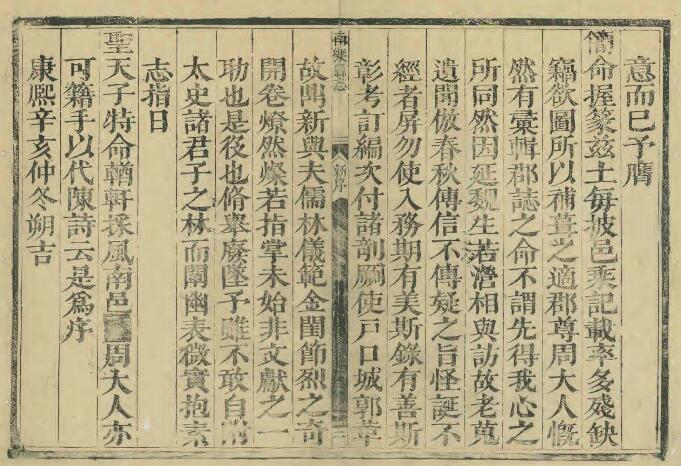 意而已予膺
簡命握篆兹土每披邑乘記載率多殘缺
竊欲圖所以補葺之適郡尊周大人慨
然有彙輯郡誌之命不謂先得我心之
所同然因延魏生若瀯相與訪故老蒐
遺聞倣春秋傳信不傳疑之旨怪誕不
經者屏勿使入務期有美斯錄有善斯
彰考訂編次付諸剞劂使戸口城郭葦
南樂縣志
新序
故鼎新與夫儒林儀範金閨節烈之奇
開卷燎然燦若指掌未始非文獻之一
助也是後也脩舉廢墜予雖不敢自附
太史諸君子之林而闡幽表微實抱素
志指日
聖天子特命輶軒採風南邑周大人亦
可籍手以代陳詩云是爲序
康熙辛亥仲冬朔吉